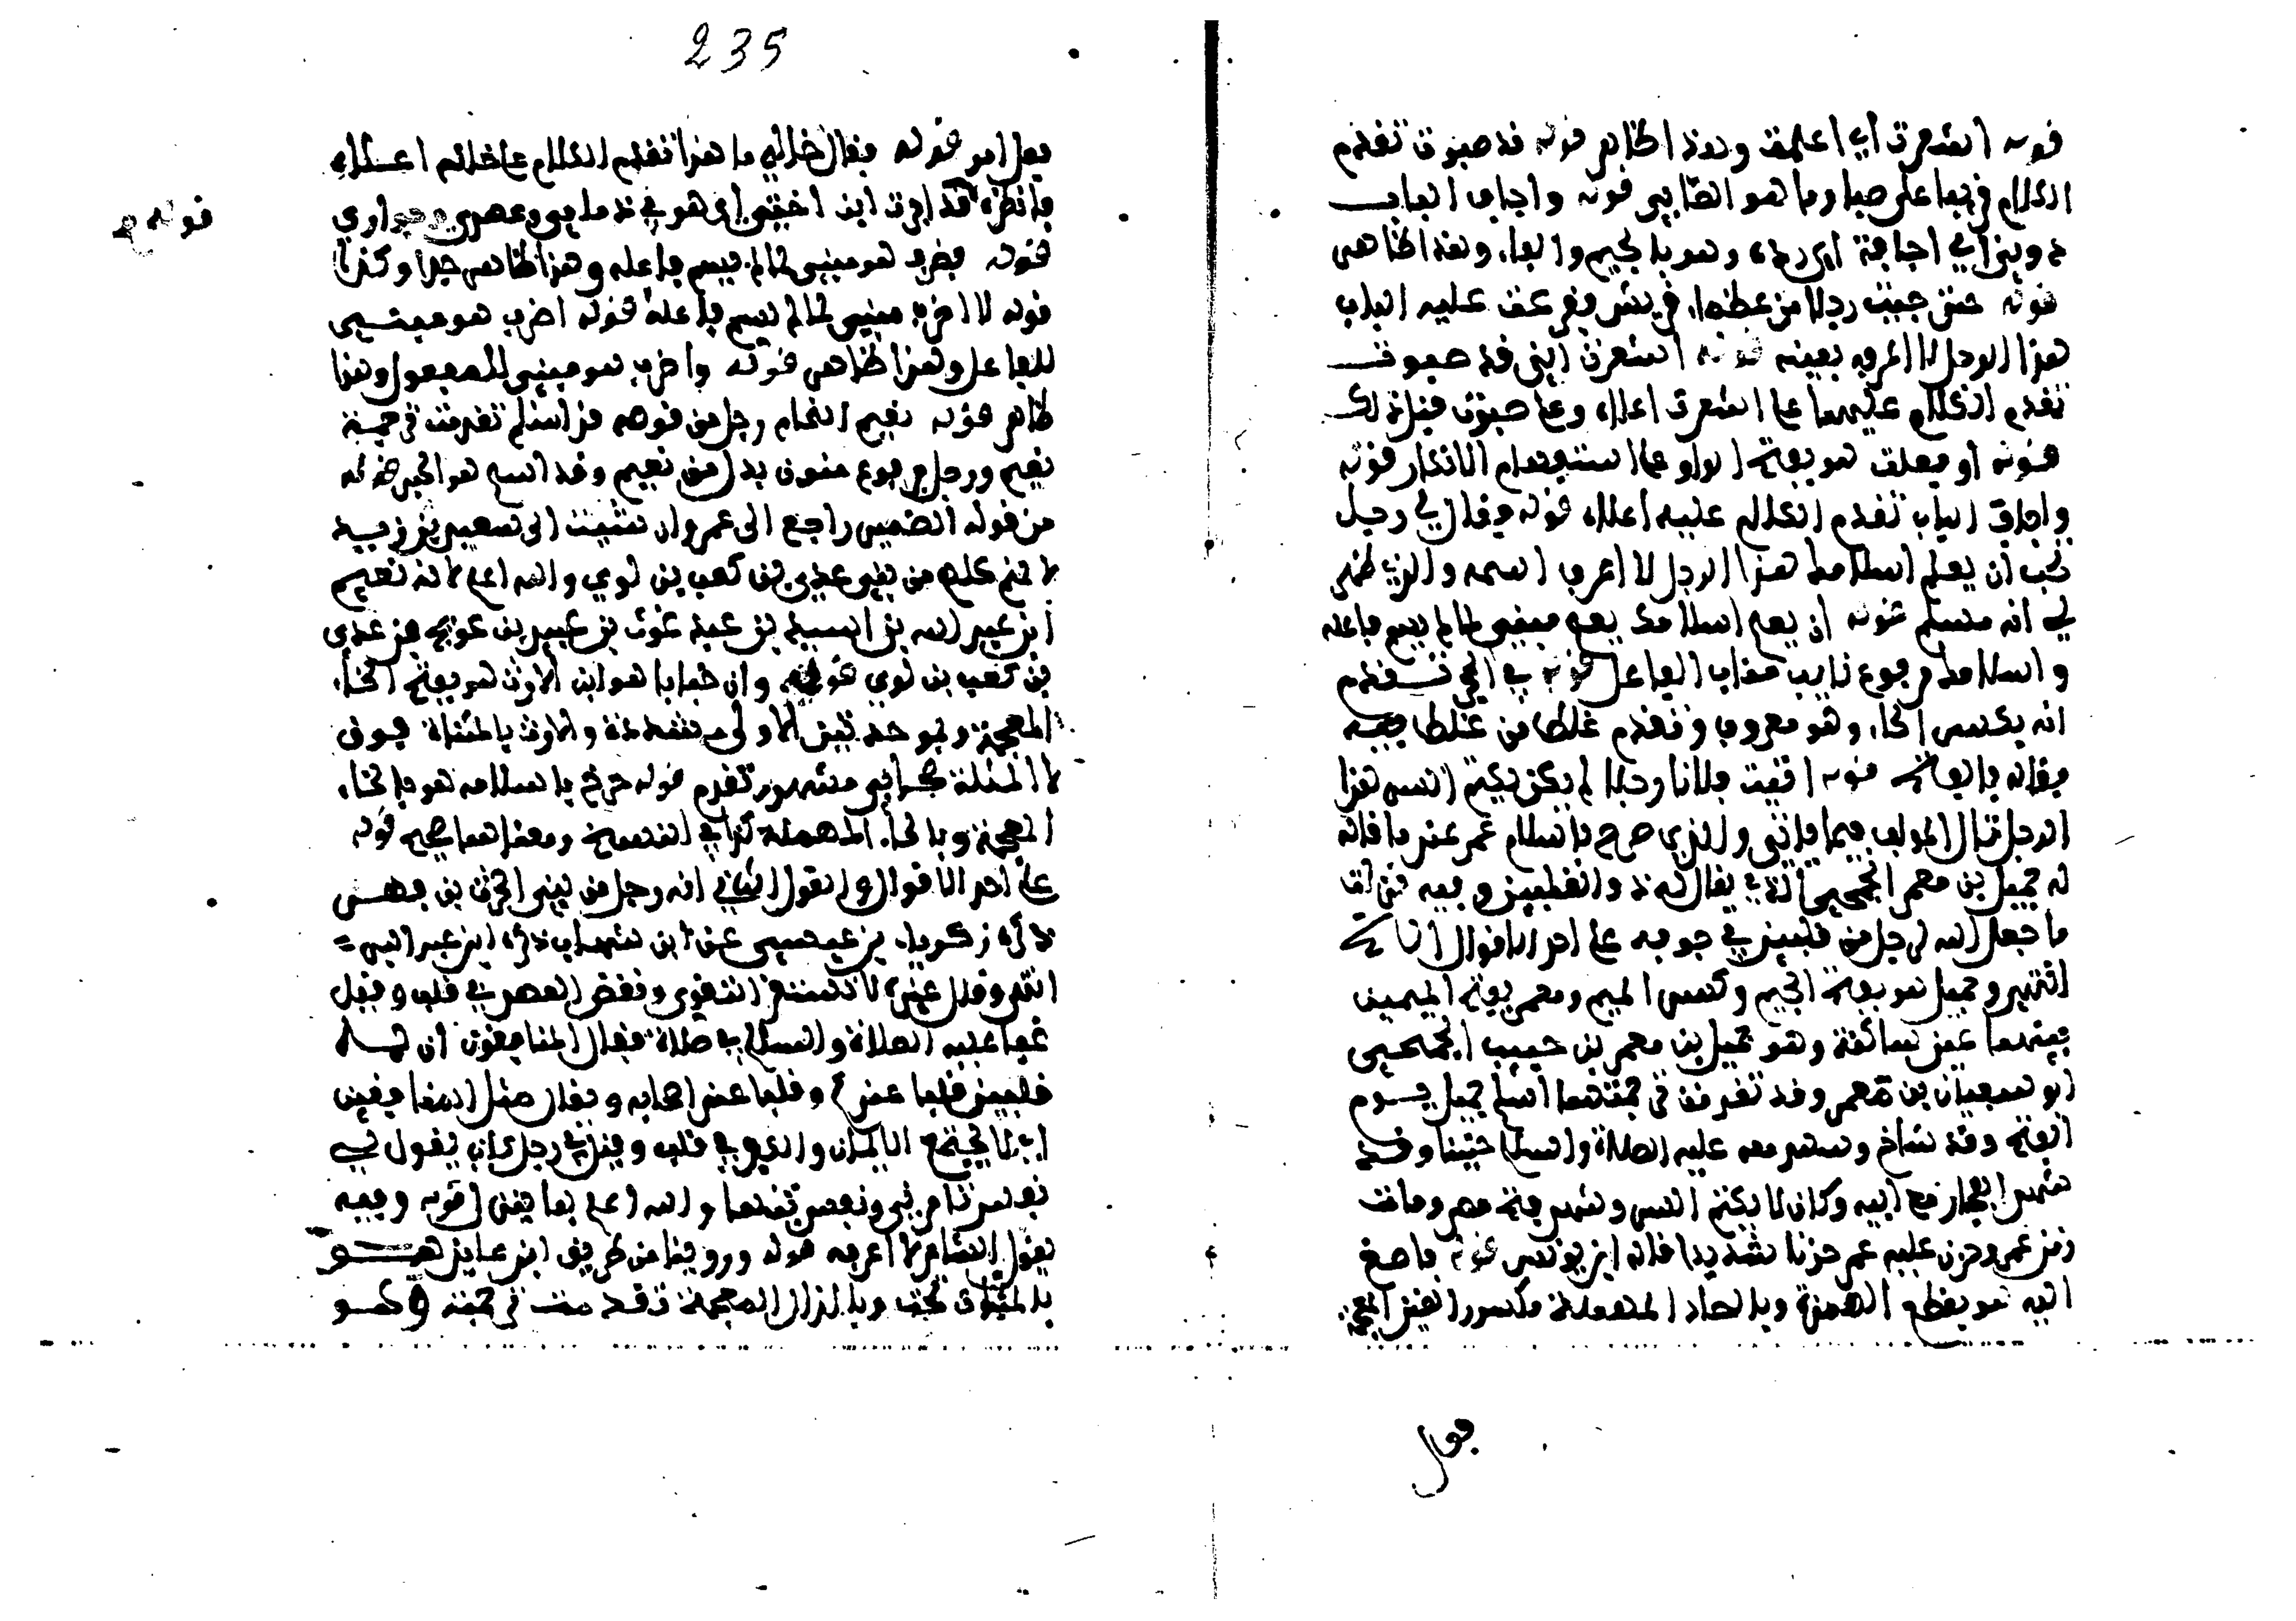 قوله أشعرت أي أعلمت وهذا ظاهر قوله قد صبوت تقدم
الكلام في صبا على صبا وما هو الصابي قوله وأجاف الباب
دوني أي أجافه أي رده وهو بالجيم والفاء وهذا ظاهر
قوله حتى جئت رجلا من عظماء قريش فقرعت عليه الباب
هذا الرجل لا أعرفه بعينه قوله أشعرت أني قد صبوت
تقدم الكلام عليهما على أشعرت أعلاه وعلى صبوت قبل ذلك
قوله أو فعلت هو بفتح الواو على استفهام الإنكار قوله
وأجاف الباب تقدم الكلام عليه أعلاه قوله فقال لي رجل
تحب أن يعلم إسلامك هذا الرجل لا أعرف اسمه والذي ظهر
لي أنه مسلم قوله أن يعلم إسلامك يعلم مبني لما لم يسم فاعله
وإسلامك مرفوع نايب مناب الفاعل قوله في الحجر تقدم
أنه بكسر الحاء وهو معروف وتقدم غلط من غلط فيه
فقاله بالفتح قوله أتيت فلانا رجلا لم يكن يكتم السر هذا
الرجل قال المؤلف فيما يأتي والذي صرح بإسلام عمر عندما قال
له جميل بن معمر الجمحي الذي يقال له ذو القلبين وفيه نزلت
ما جعل الله لرجل من قلبين في جوفه على أحد الأقوال
انتهى وجميل هو بفتح الجيم وكسر الميم ومعمر بفتح الميمين
بينهما عين ساكنة وهو جميل بن معمر بن حبيب الجمحي
أبو سفيان بن معمر وقد تقدمت ترجمتهما أسلم جميل يوم
الفتح وقد شاخ وشهد معه عليه الصلاة والسلام حنينا وقد
شهد الفجار مع أبيه وكان لا يكتم السر وشهد فتح مصر ومات
زمن عمر وحزن عليه عمر حزنا شديدا قاله ابن يونس قوله فأصغ
إليه هو بقطع الهمزة وبالصاد المهملة مكسور الغين المعجمة
فعل
235
فعل أمر قوله فقال خالي ما هذا تقدم الكلام على خاله أعلاه
فانظره قد أجرت ابن أختي أي هو في ذمامي وعهدي وجواري
قوله
قوله يضرب هو مبني لما لم يسم فاعله وهذا ظاهر جدا وكذا
قوله لا أضرب مبني لما لم يسم فاعله قوله أضرب هو مبني
للفاعل وهذا ظاهر قوله وأضرب هو مبني للمفعول وهذا
ظاهر قوله نعيم النحام رجل من قومه قد أسلم تقدمت ترجمة
نعيم ورجل مرفوع منون بدل من نعيم وقد أسلم هو الخبر قوله
من قومه الضمير راجع إلى عمر وإن شئت إلى سعيد بن زيد
لأنهم كلهم من بني عدي بن كعب بن لؤي والله أعلم لأنه نعيم
ابن عبد الله بن أسيد بن عبد عوف بن عبيد بن عويج بن عدي
بن كعب بن لؤي قوله وأن خبابا هو ابن الأرت هو بفتح الخاء
المعجمة وبموحدتين الأولى مشددة والأرت بالمثناة فوق
لا المثلثة صحابي مشهور تقدم قوله صرخ بإسلامه هو بالخاء
المعجمة وبالحاء المهملة كذا في النسخ ومعناهما صحيح قوله
على أحد الأقوال والقول الثاني أنه رجل من بني الحرث بن فهر
ذكره زكرياء بن عيسى عن ابن شهاب ذكره ابن عبد البر
انتهى وقال غيره لا تستقر التقوى ونقض العهد في قلب وقيل
غفا عليه الصلاة والسلام في صلاة فقال المنافقون أن له
قلبين قلبا عندكم وقلبا عند أصحابه ويقال مثل المنافقين
أي لا يجتمع الإيمان والكفر في قلب وقيل في رجل كان يقول لي
نفس تأمرني ونفس تنهاني والله أعلم بما يعني قوله وفيه
يقول الشاعر لا أعرفه قوله وروينا من طريق ابن عايذ هو
بالمثناة تحت وبالذال المعجمة تقدمت ترجمته وهو